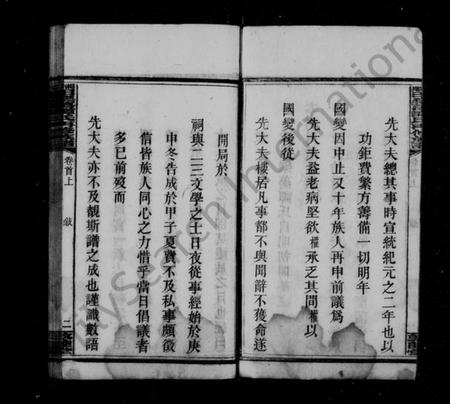 先大夫總其事時宣統紀元之二年也以
功鉅費繁方籌備一切明年
國變因中止又十年族人再申前議爲
先大夫益老病堅欲權承乏其間權以
國變後從
先大夫樓居凡事都不與聞辭不獲命遂
開局於
祠與二三文學之士日夜從事經始於庚
申冬告成於甲子夏費不及私事頗徵
信皆族人同心之力惜乎當日倡議者
多已前歿而
先大夫亦不及覩斯譜之成也謹識數語
卷首上
敍
二